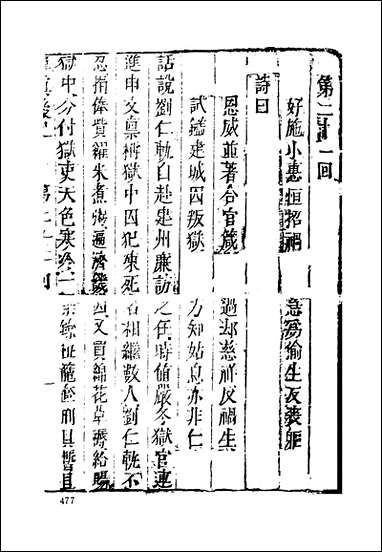 第二十一回
好施小惠恒招禍　急為偷生反喪軀
詩曰
恩威並著合官箴　過却慈祥反禍生
試鑑建城囚叛獄　方知姑息亦非仁
話說劉仁軌自赴建州廉訪之任時值嚴冬獄官連
進申文稟稱獄中囚犯凍死者相繼數人劉仁軌不
忍捐俸賫糴米煮粥遍濟饑囚又買綿花草薦給賜
獄中分付獄吏天色寒冷一刑具暫且
477